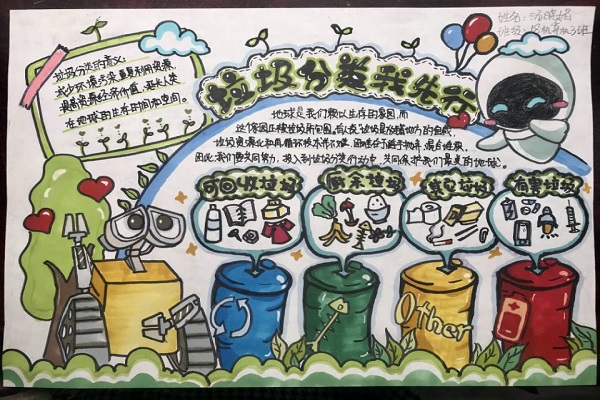 姓名：
班级：
垃圾分类我先行
垃圾分类的意义：
减少环境污染，重复利用资源
提高资源经济价值，延长人类
在地球的生存时间和空间。
地球是我们赖以生存的家园，而
这个家园正被垃圾所包围，
因此，我们要共同努力，投入到垃圾分类行动中，共同保护我们最美的地球。
可回收垃圾
厨余垃圾
其它垃圾
有害垃圾
Other